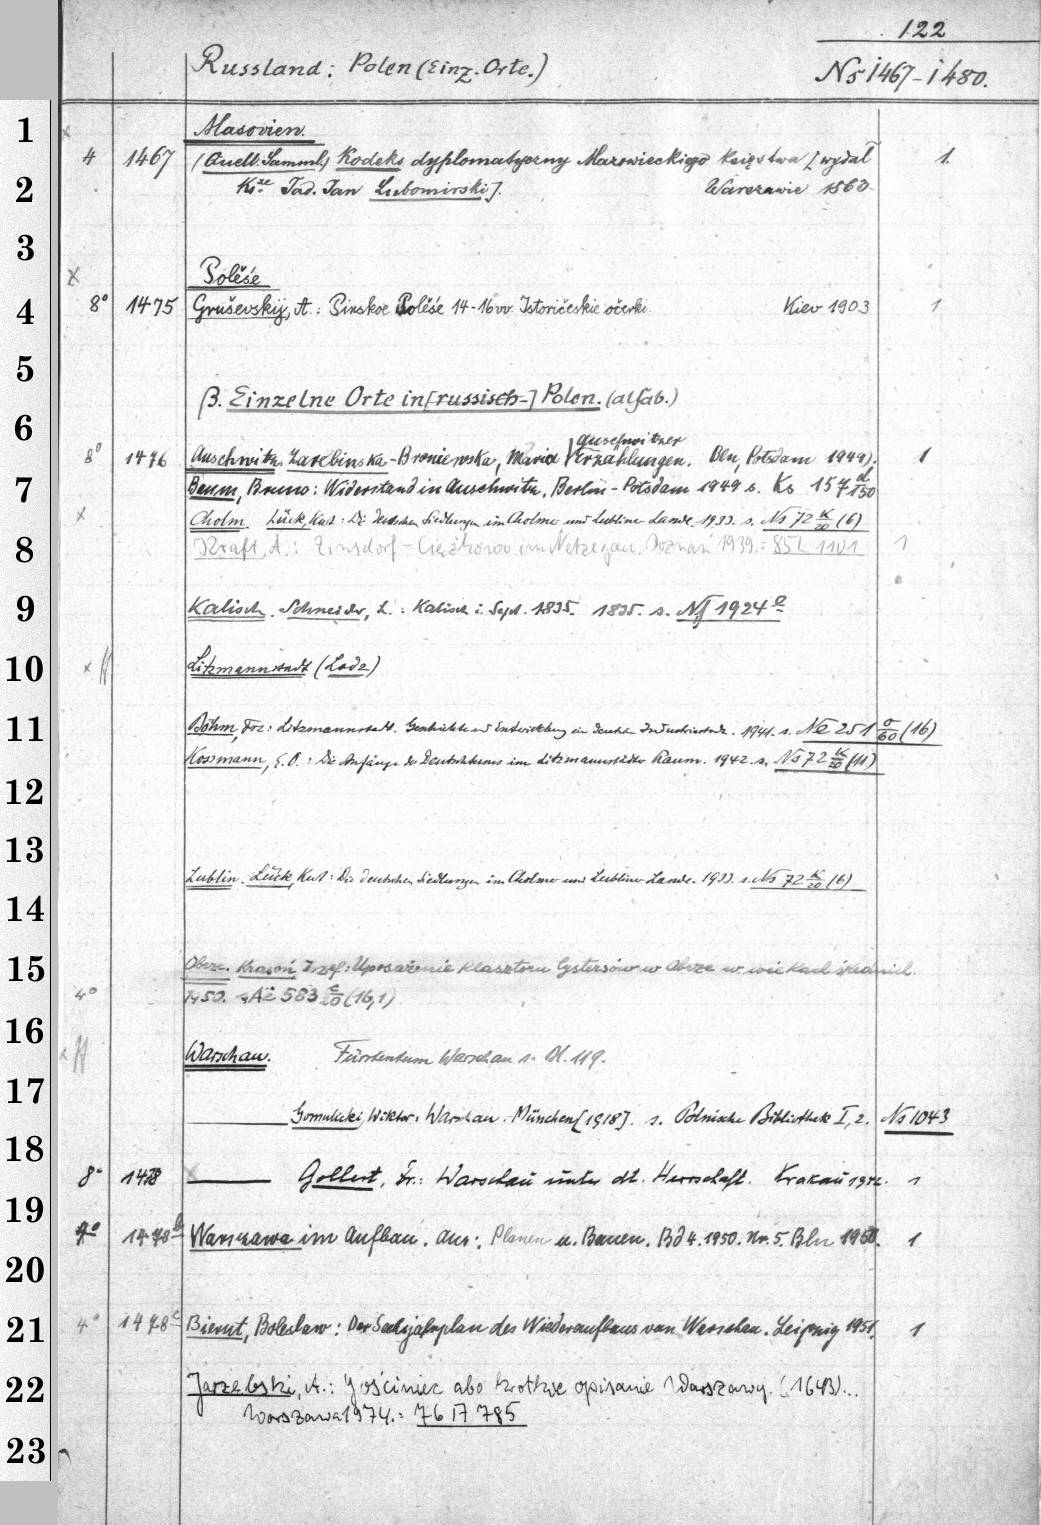 122
Russland: Polen (Einz. Orte.)
Ns 1467-1480.
1
Masovien.
4 1467 (Quell. Samml.) Kodeks dyplomatyczny Mazowieckiego księstwa [wydał 1.
2
Kże Tad. Jan Lubomirski]. Warszawie 1863.
3
Polěśe
4
8° 1475 Gruševskij, A.: Pinskoe Polěśe 14-16 vv. Istoričeskie očerki. Kiev 1903 1
5
β. Einzelne Orte in [russisch-] Polen. (alfab.)
6
Auschwitzer
8° 1476 Auschwitz. Zarebinska-Broniewska, Maria Erzählungen. Bln, Potsdam 1949). 1
7
Baum, Bruno: Widerstand in Auschwitz. Berlin-Potsdam 1949 s. Ks 157 d/150
Cholm. Lück, Kurt: Die deutschen Siedlungen im Cholmer und Lubliner Lande. 1933. s. Ns 72 K/20 (6)
8
Kraft, A.: Zinsdorf - Ciążkowo im Netzegau. Poznań 1939.: 85 L 1101 1
9
Kalisch. Schneider, L.: Kalisch i. Sept. 1835. 1835. s. Nf 1924 a
10
Litzmannstadt (Lodz)
11
Böhm, Frz: Litzmannstadt. Geschichte und Entwicklung einer deutschen Industriestadt. 1941. s. Ne 251 σ/60 (16)
Kossmann, E.O.: Die Anfänge des Deutschtums im Litzmannstädter Raum. 1942. s. Ns 72 K/20 (11)
12
13
Lublin. Lück, Kurt: Die deutschen Siedlungen im Cholmer und Lubliner Lande. 1933. s. Ns 72 K/20 (6)
14
15
Obrze. Krasoń, Józef: Uposażenie klasztoru Cystersów w Obrze w wiekach średnich.
4° 1950. s. Až 583 c/20 (16,1)
16
Warschau. Fürstentum Warschau s. Bl. 119.
17
Gomulicki, Wiktor: Warschau. München [1918]. s. Polnische Bibliothek I, 2. Ns 1043
18
8° 1478 Gollert, Fr.: Warschau unter dt. Herrschaft. Krakau 1942. 1
19
4° 1478 b Warszawa im Aufbau. Aus: Planen u. Bauen. Bd 4. 1950. Nr. 5. Bln 1950. 1
20
21
4° 1478 c Bierut, Boleslaw: Der Sechsjahrplan des Wiederaufbaus von Warschau. Leipzig 1951. 1
22
Jarzębski, A.: Gościniec abo krotkie opisanie Warszawy. (1643)...
Warszawa 1974.: 76 17 785
23